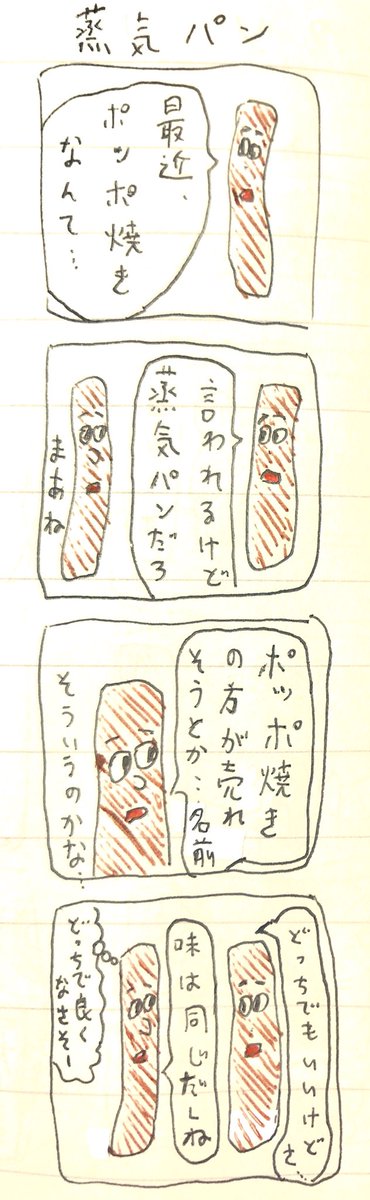 蒸気パン
最近、
ポッポ焼き
なんて…
言われるけど
蒸気パンだろ
まあね
ポッポ焼き
の方が売れ
そうとか…名前
そういうのかな…
どっちでもいいけどさ
味は同じだしね
どっちで良く
なさそー